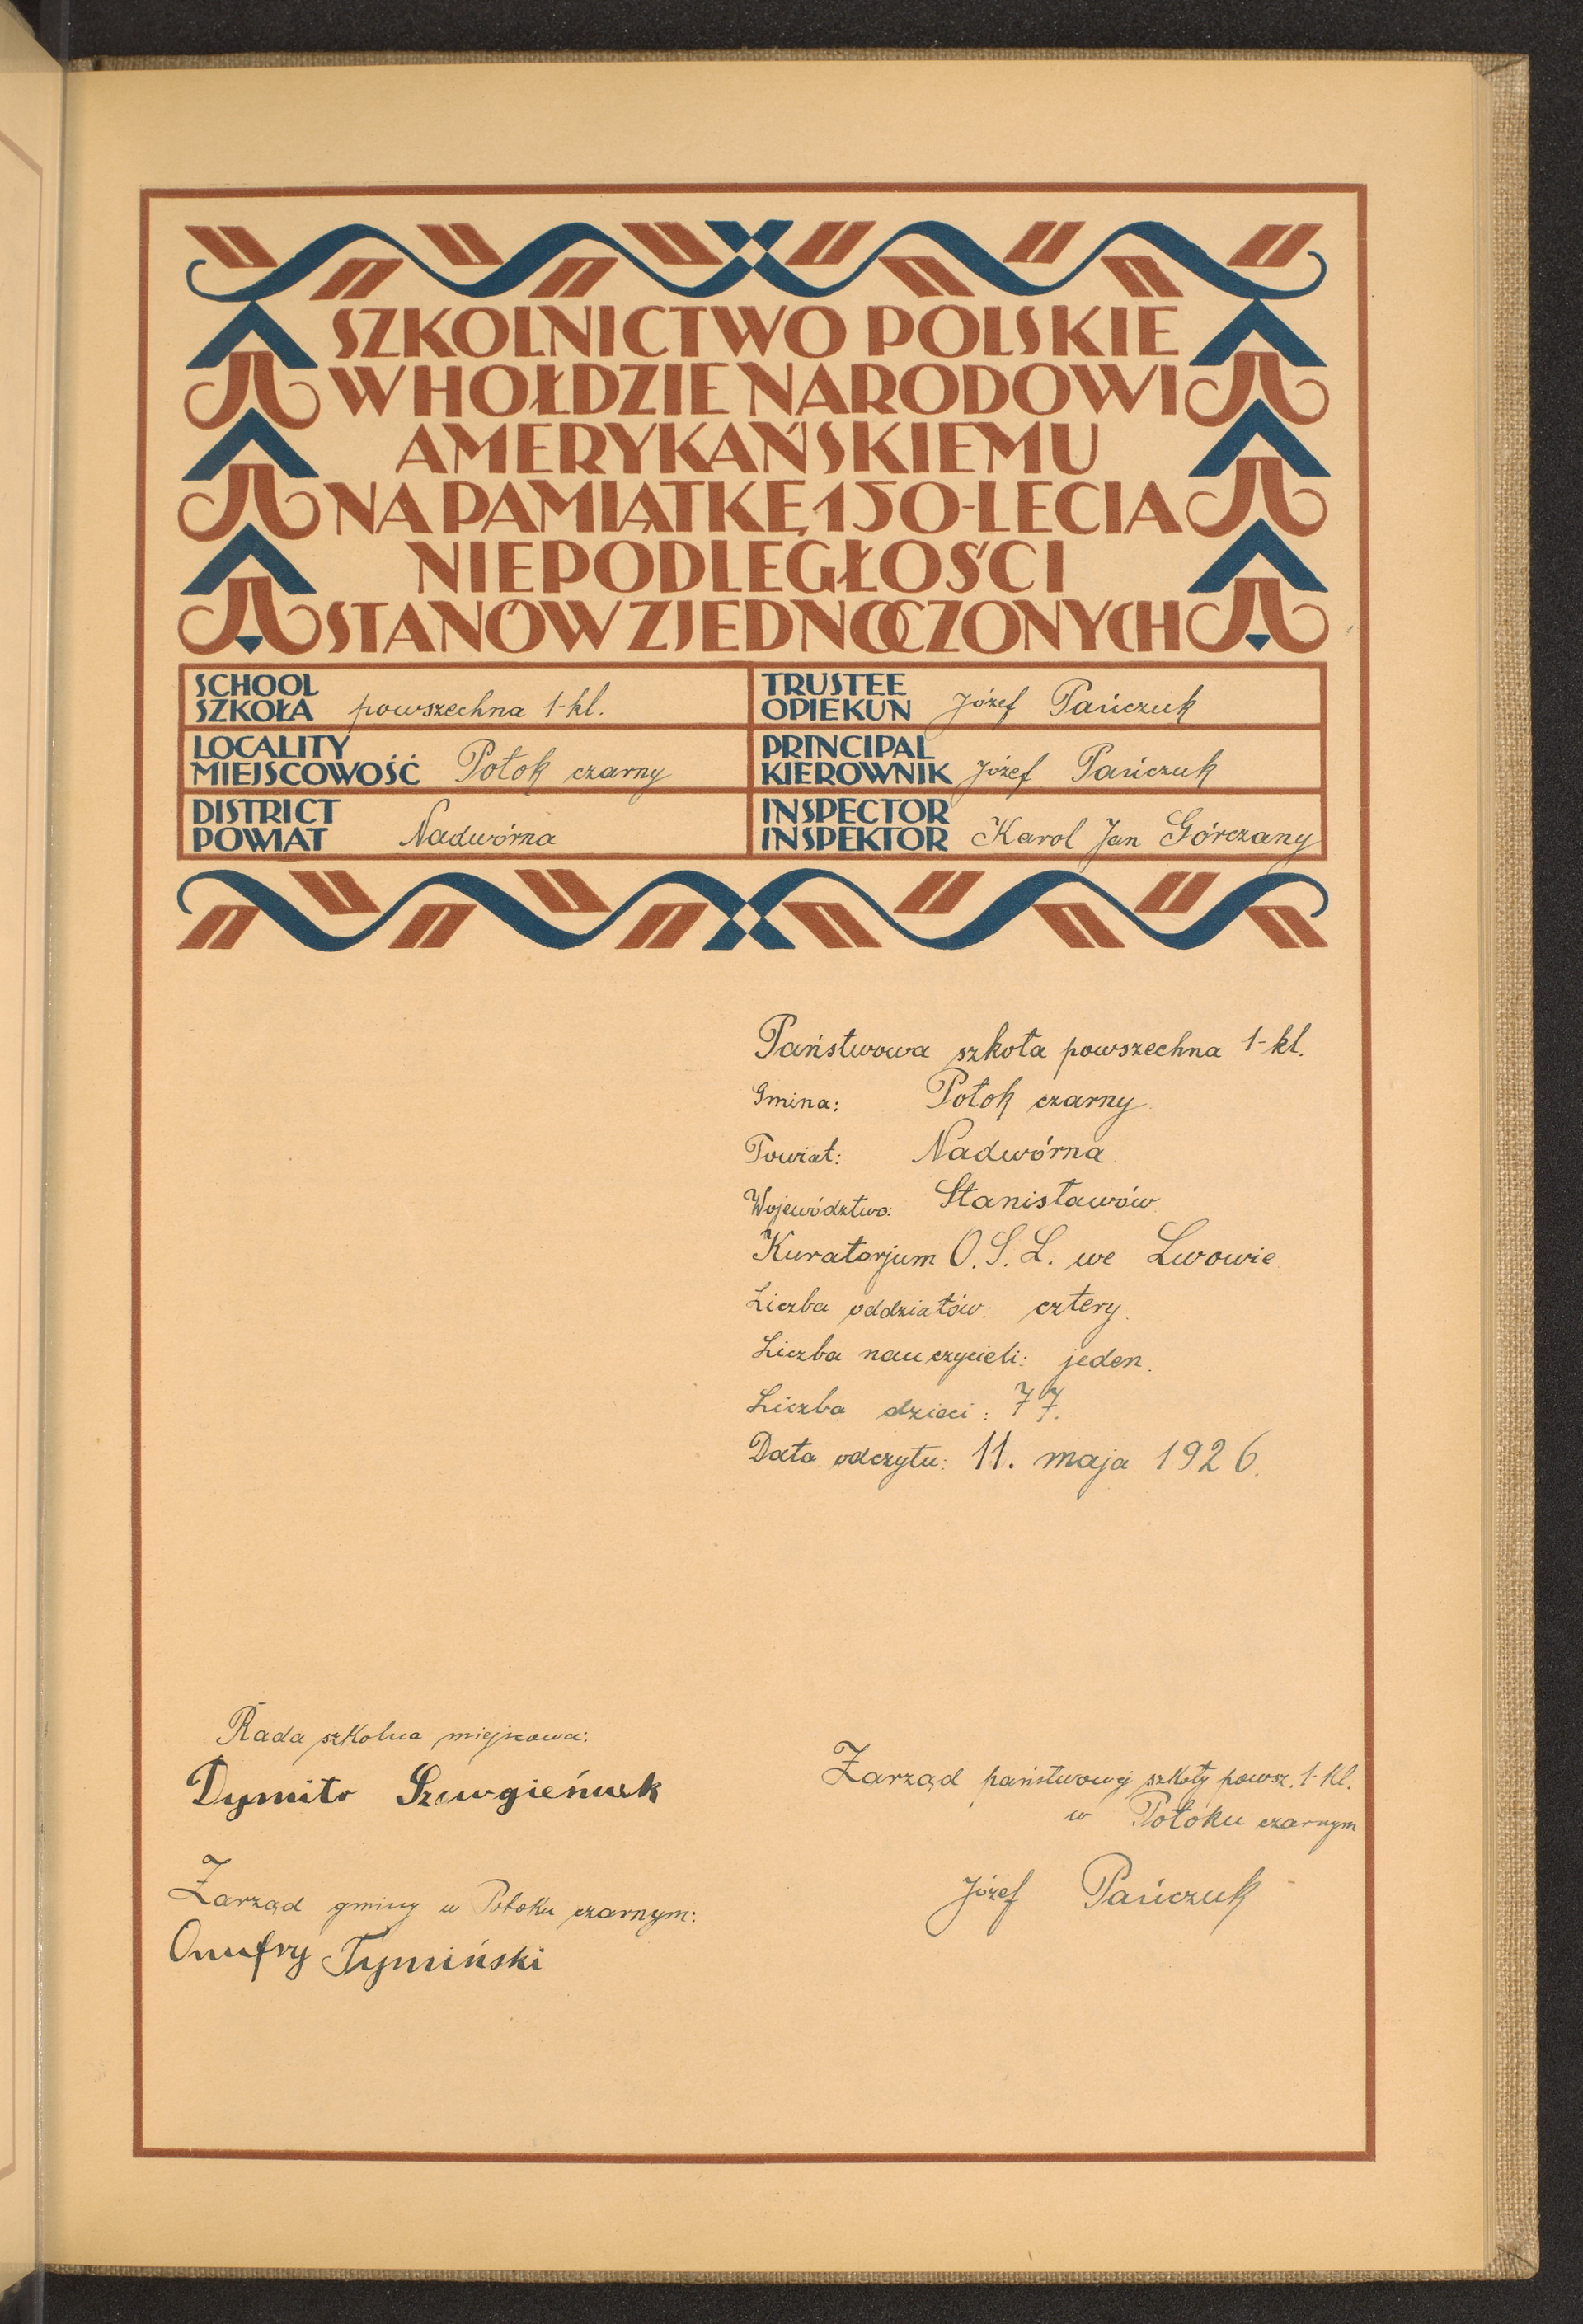 SZKOLNICTWO POLSKIE
W HOŁDZIE NARODOWI
AMERYKAŃSKIEMU
NA PAMIĄTKĘ 150-LECIA
NIEPODLEGŁOŚCI
STANÓW ZJEDNOCZONYCH
SCHOOL
SZKOŁA powszechna 1-kl.
TRUSTEE
OPIEKUN Józef Pańczuk
LOCALITY
MIEJSCOWOŚĆ Potok czarny
PRINCIPAL
KIEROWNIK Józef Pańczuk
DISTRICT
POWIAT Nadwórna
INSPECTOR
INSPEKTOR Karol Jan Górczany
Państwowa szkoła powszechna 1-kl.
Gmina: Potok czarny
Powiat: Nadwórna
Województwo: Stanisławów
Kuratorjum O.S.L. we Lwowie
Liczba oddziałów: cztery.
Liczba nauczycieli: jeden.
Liczba dzieci: 77.
Data odczytu: 11. maja 1926.
Rada szkolna miejscowa:
Dymitr
Zarząd gminy w Potoku czarnym:
Onufry Tymiński
Zarząd państwowej szkoły powsz. 1-kl.
w Potoku czarnym
Józef Pańczuk